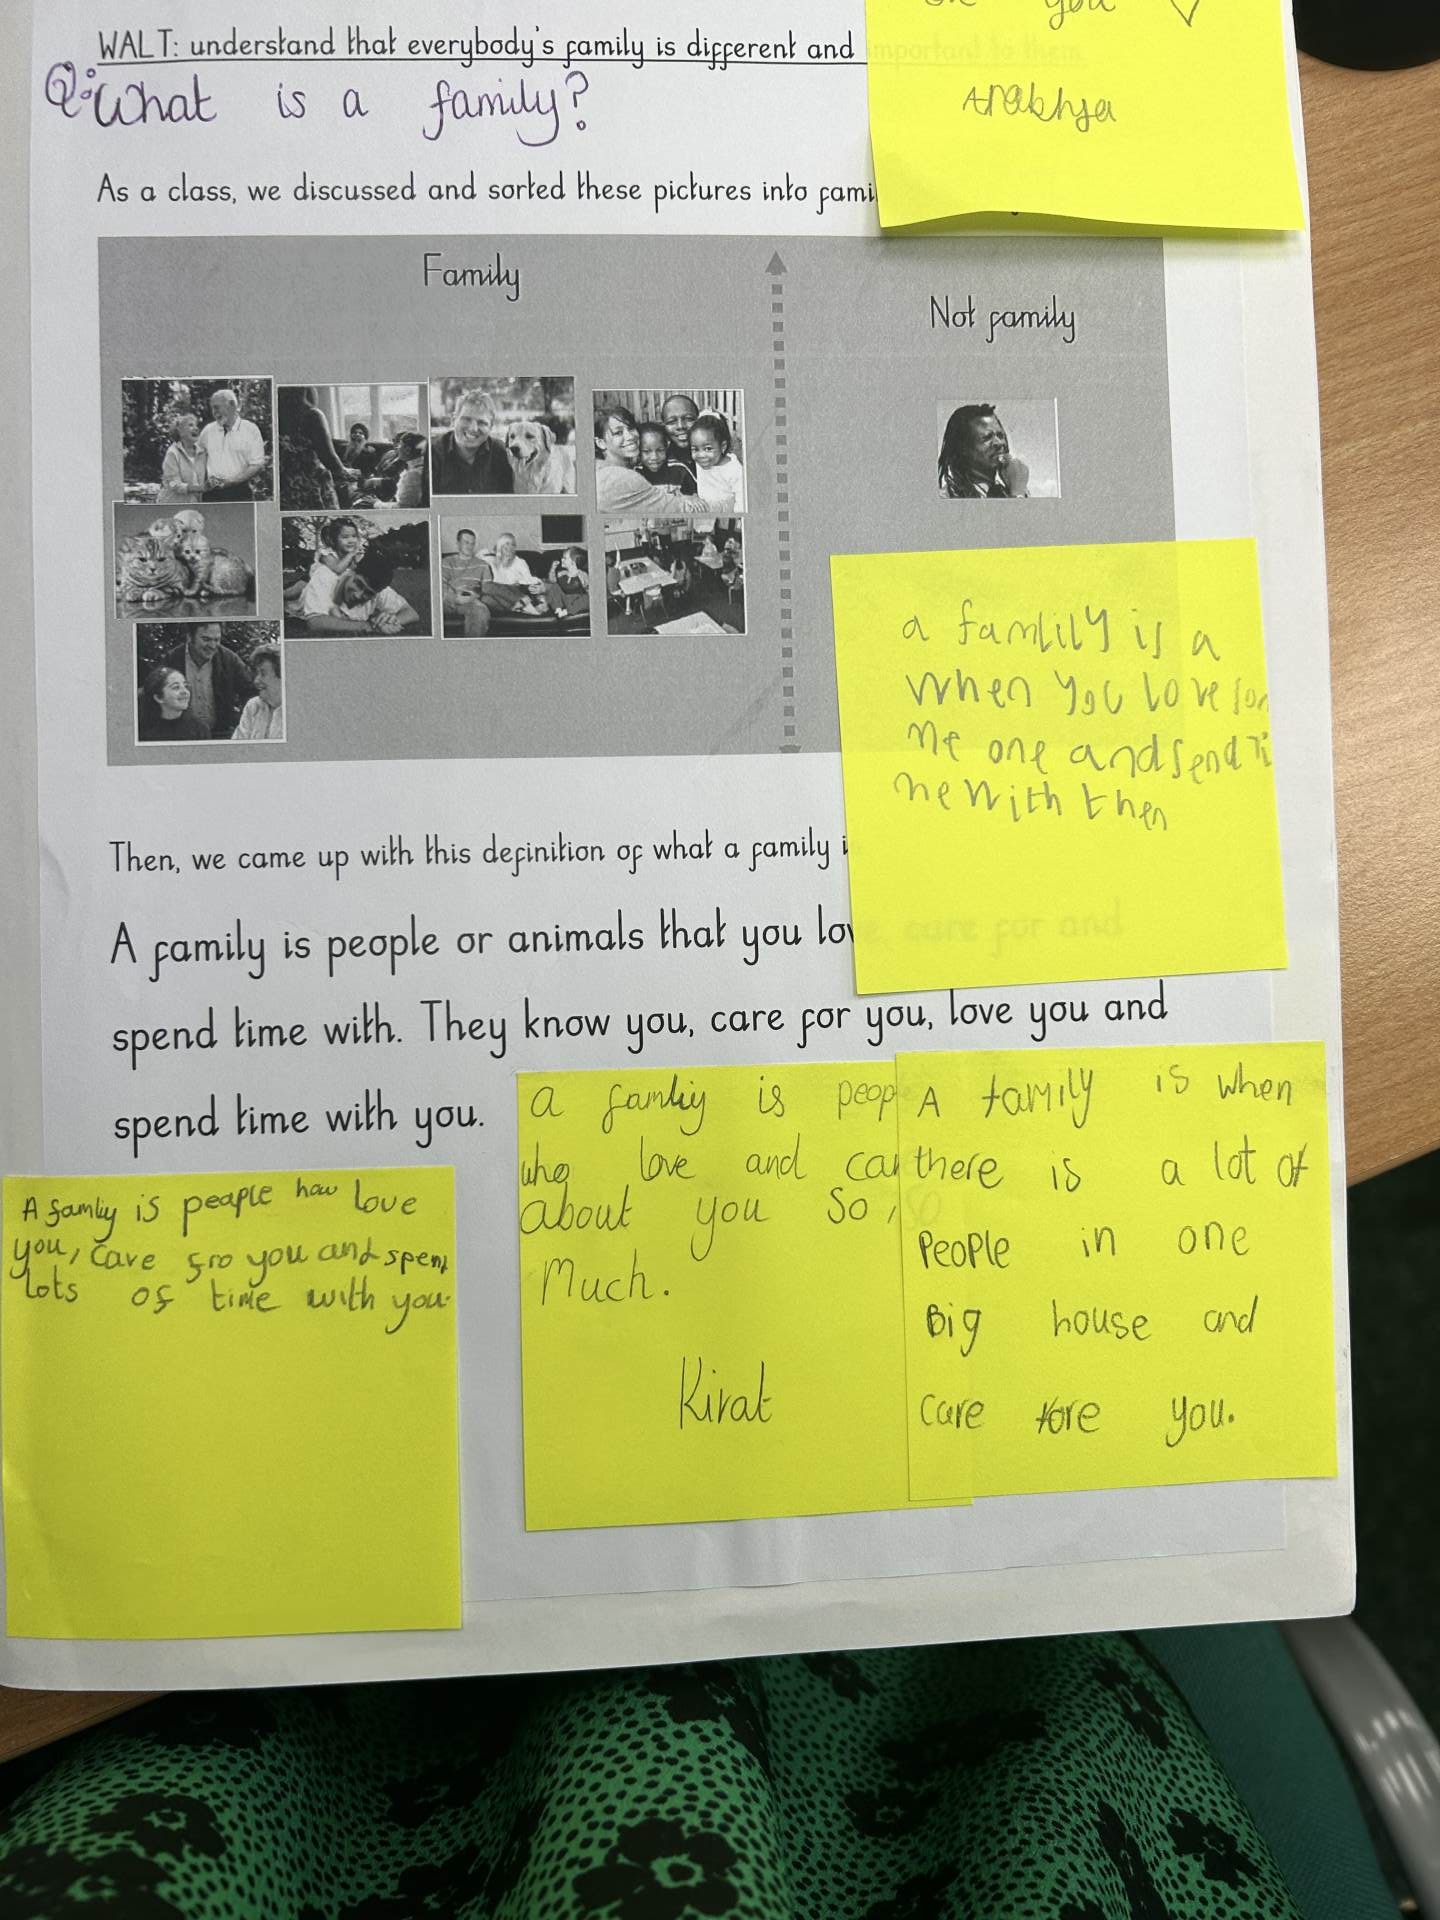 on you
Arakhya
WALT: understand that everybody's family is different and important to them
Q: What is a family?
As a class, we discussed and sorted these pictures into fami
Family
Not family
a famlily is a
when you love som
me one and send ti
me with then
Then, we came up with this definition of what a family i
A family is people or animals that you love, care for and
spend time with. They know you, care for you, love you and
spend time with you.
A famliy is peaple how love
you, Cave fro you and spent
lots of time with you.
a famliy is peop
who love and car
about you So, so
Much.
Kirat
A family is when
there is a lot of
People in one
Big house and
care fore you.